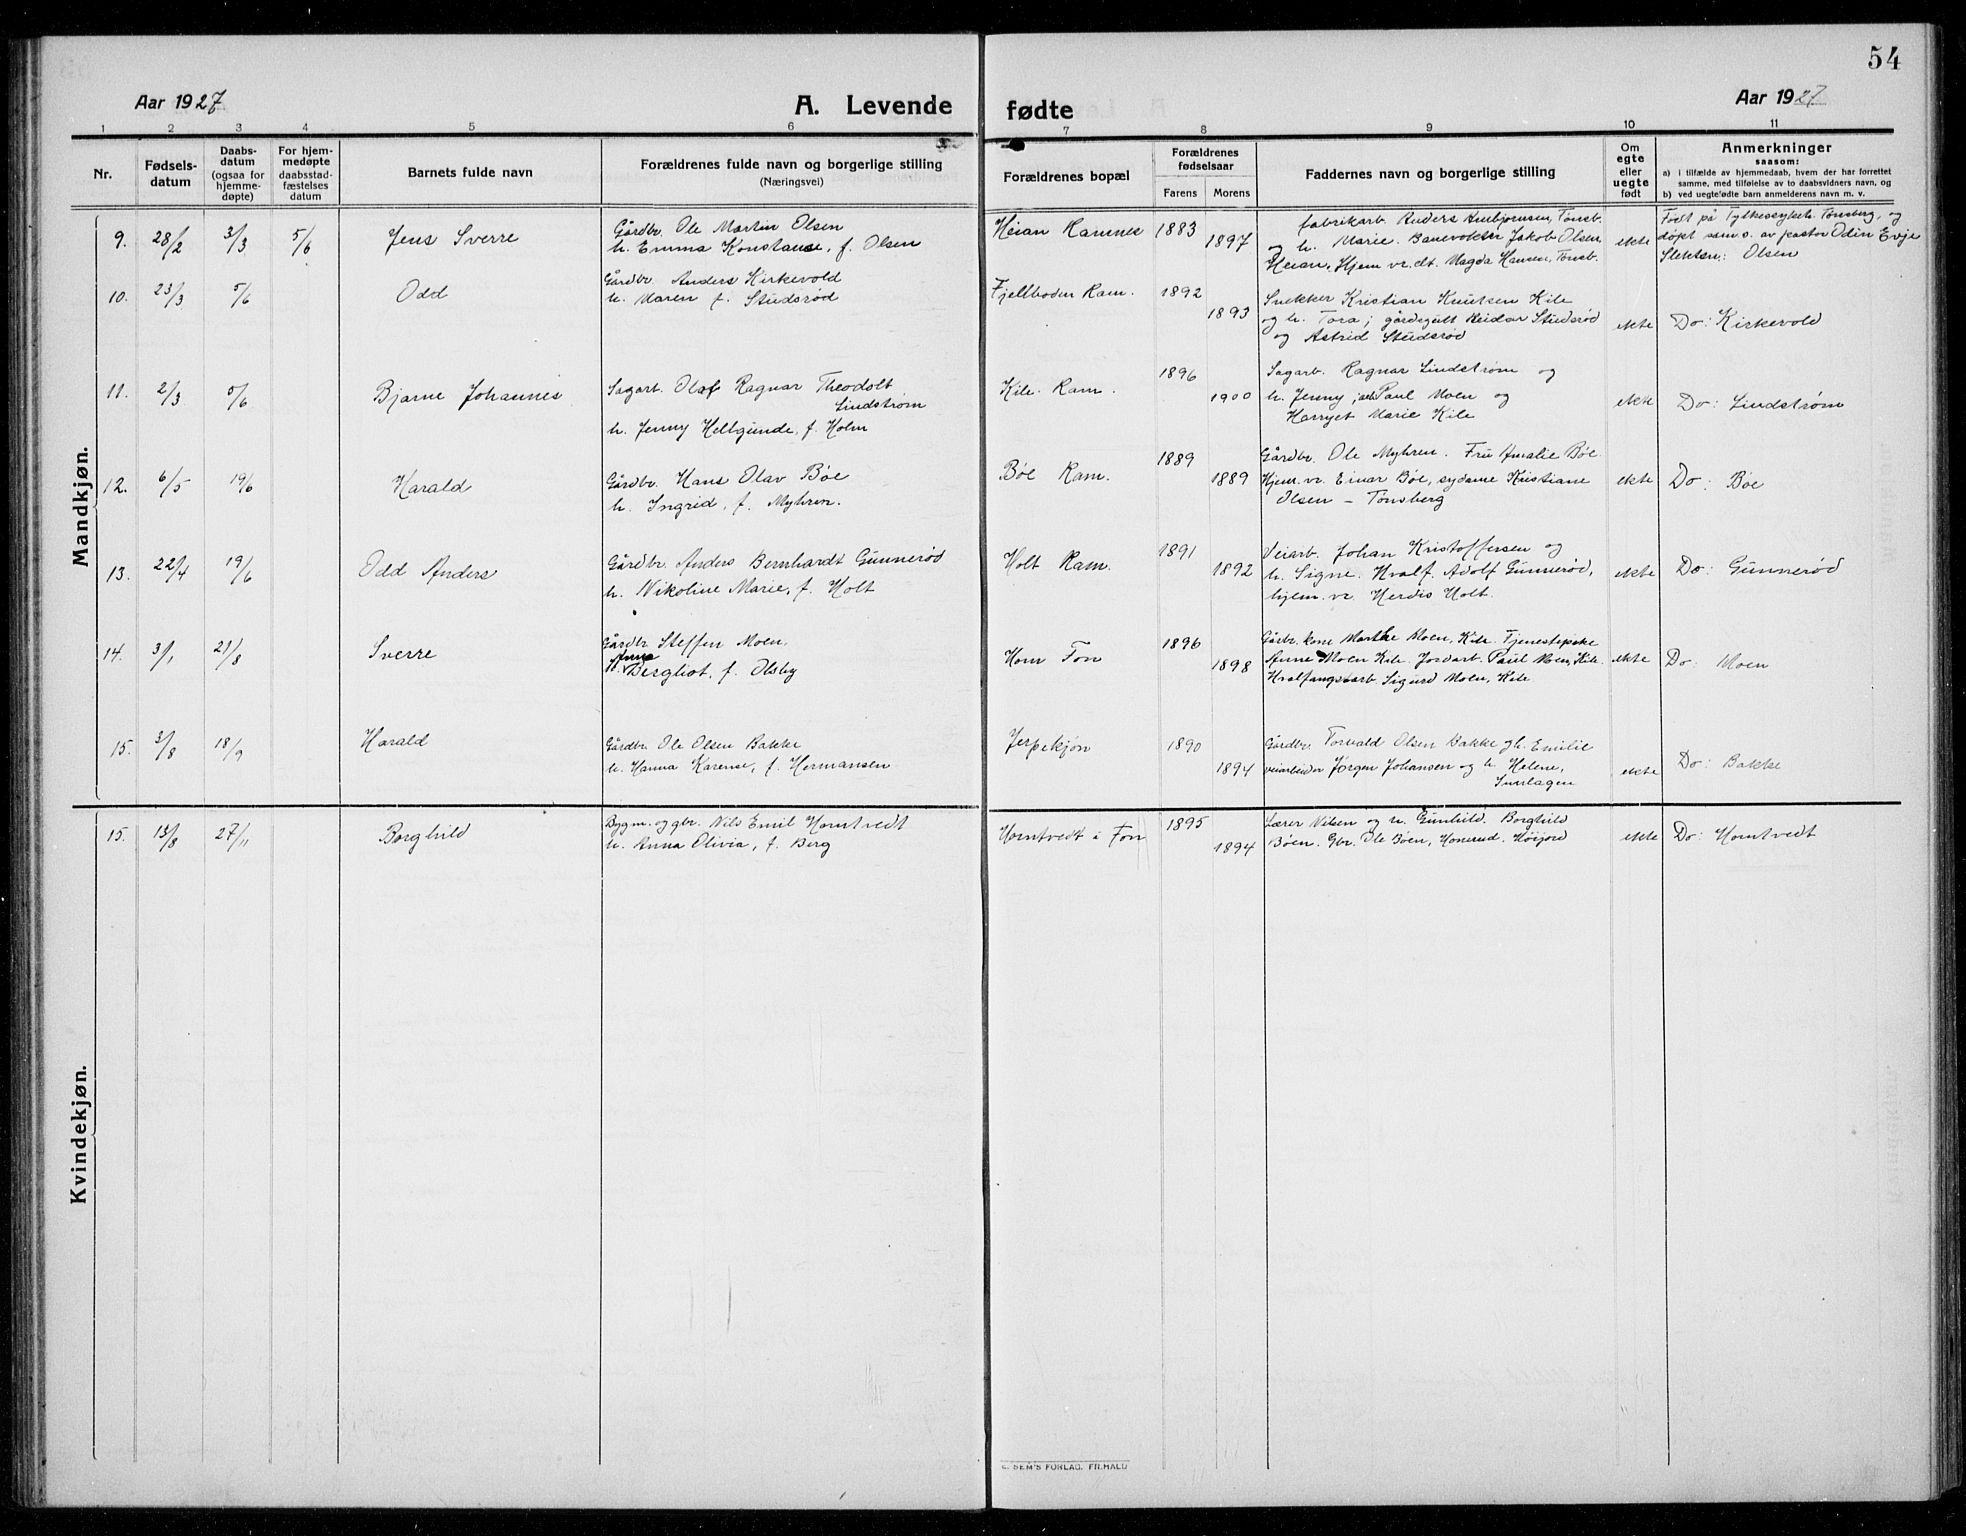 54
Aar 1927
A. Levende
fødte
Aar 1927
1 2 3 4 5 6 7 8 9 10 11
Nr.
Fødsels-
datum
Daabs-
datum
(ogsaa for
hjemme-
døpte)
For hjem-
medøpte
daabsstad-
fæstelses
datum
Barnets fulde navn
Forældrenes fulde navn og borgerlige stilling
(Næringsvei)
Forældrenes bopæl
Forældrenes
fødselsaar
Farens Morens
Faddernes navn og borgerlige stilling
Om
egte
eller
uegte
født
Anmerkninger
saasom:
a) i tilfælde av hjemmedaab, hvem der har forrettet
samme, med tilføielse av to daabsvidners navn, og
b) ved uegtefødte barn anmelderens navn m. v.
Mandkjøn.
9. 28/2 3/3 5/6 Jens Sverre
Gårdbr. Ole Martin Olsen
h. Emma Konstanse, f. Olsen
Heian Ramnes 1883 1897
fabrikarb. Anders Ambjørnsen, Tønsb.
og h. Marie. Banevokter Jakob Olsen,
Heian, Hjem. vr. dt. Magda Hansen, Tønsb.
ekte
Født på Fylkessykeh. Tønsberg, og
døpt sam. s. av pastor Odin Evje
Slektsn: Olsen
10. 23/3 5/6 Odd
Gårdbr. Anders Kirkevold
h. Maren f. Studsrød
Fjellboden Ram. 1892 1893
Snekker Kristian Knutsen Kile
og h. Tora; gårdsgutt Reidar Studsrød
og Astrid Studsrød
ekte Do: Kirkevold
11. 2/3 5/6 Bjarne Johannes
Sagarb. Olaf Ragnar Theodolt
Lindstrøm
h. Jenny Hellgunde, f. Holm
Kile. Ram. 1896 1900
Sagarb. Ragnar Lindstrøm og
h. Jenny; Paul Moen og
Harryet Marie Kile
ekte Do: Lindstrøm
12. 6/5 19/6 Harald
Gårdbr. Hans Olav Bøe
h. Ingrid, f. Myhren.
Bøe Ram. 1889 1889
Gårdbr. Ole Myhren. Fru Amalie Bøe.
Hjem. vr. Einar Bøe, sydame Kristiane
Olsen – Tønsberg
ekte Do: Bøe
13. 22/4 19/6 Odd Anders
Gårdbr. Anders Bernhardt Gunnerød
h. Nikoline Marie, f. Holt
Holt Ram. 1891 1892
Veiarb. Johan Kristoffersen og
h. Signe. Hvalf. Adolf Gunnerød,
hjem. vr. Herdis Holt.
ekte Do: Gunnerød
14. 3/1 21/8 Sverre
Gårdbr Steffen Moen,
h. Anna Bergliot, f. Olsby
Hom Fon 1896 1898
Gårbr. kone Marthe Moen, Kile. Tjenestepike
Anne Moen Kile. Jordarb. Paul Moen, Kile.
Hvalfangsarb. Sigurd Moen, Kile
ekte Do: Moen
15. 3/8 18/9 Harald
Gårdbr. Ole Olsen Bakke
h. Hanna Karense, f. Hermansen
Jerpekjøn 1890 1894
Gårdbr. Torvald Olsen Bakke og h. Emilie
veiarbeider Jørgen Johansen og h. Helene,
ekte Do: Bakke
Kvindekjøn.
15. 13/8 27/11 Borghild
Bygm. og gbr. Nils Emil Horntvedt
h. Anna Olivia, f. Berg
Horntvedt i Fon 1895 1894
Lærer Nilsen og h. Gunhild. Borghild
Bøen. Gbr. Ole Bøen, Honerud. Høijord
ekte Do: Horntvedt
SEM'S FORLAG. FR.HALD